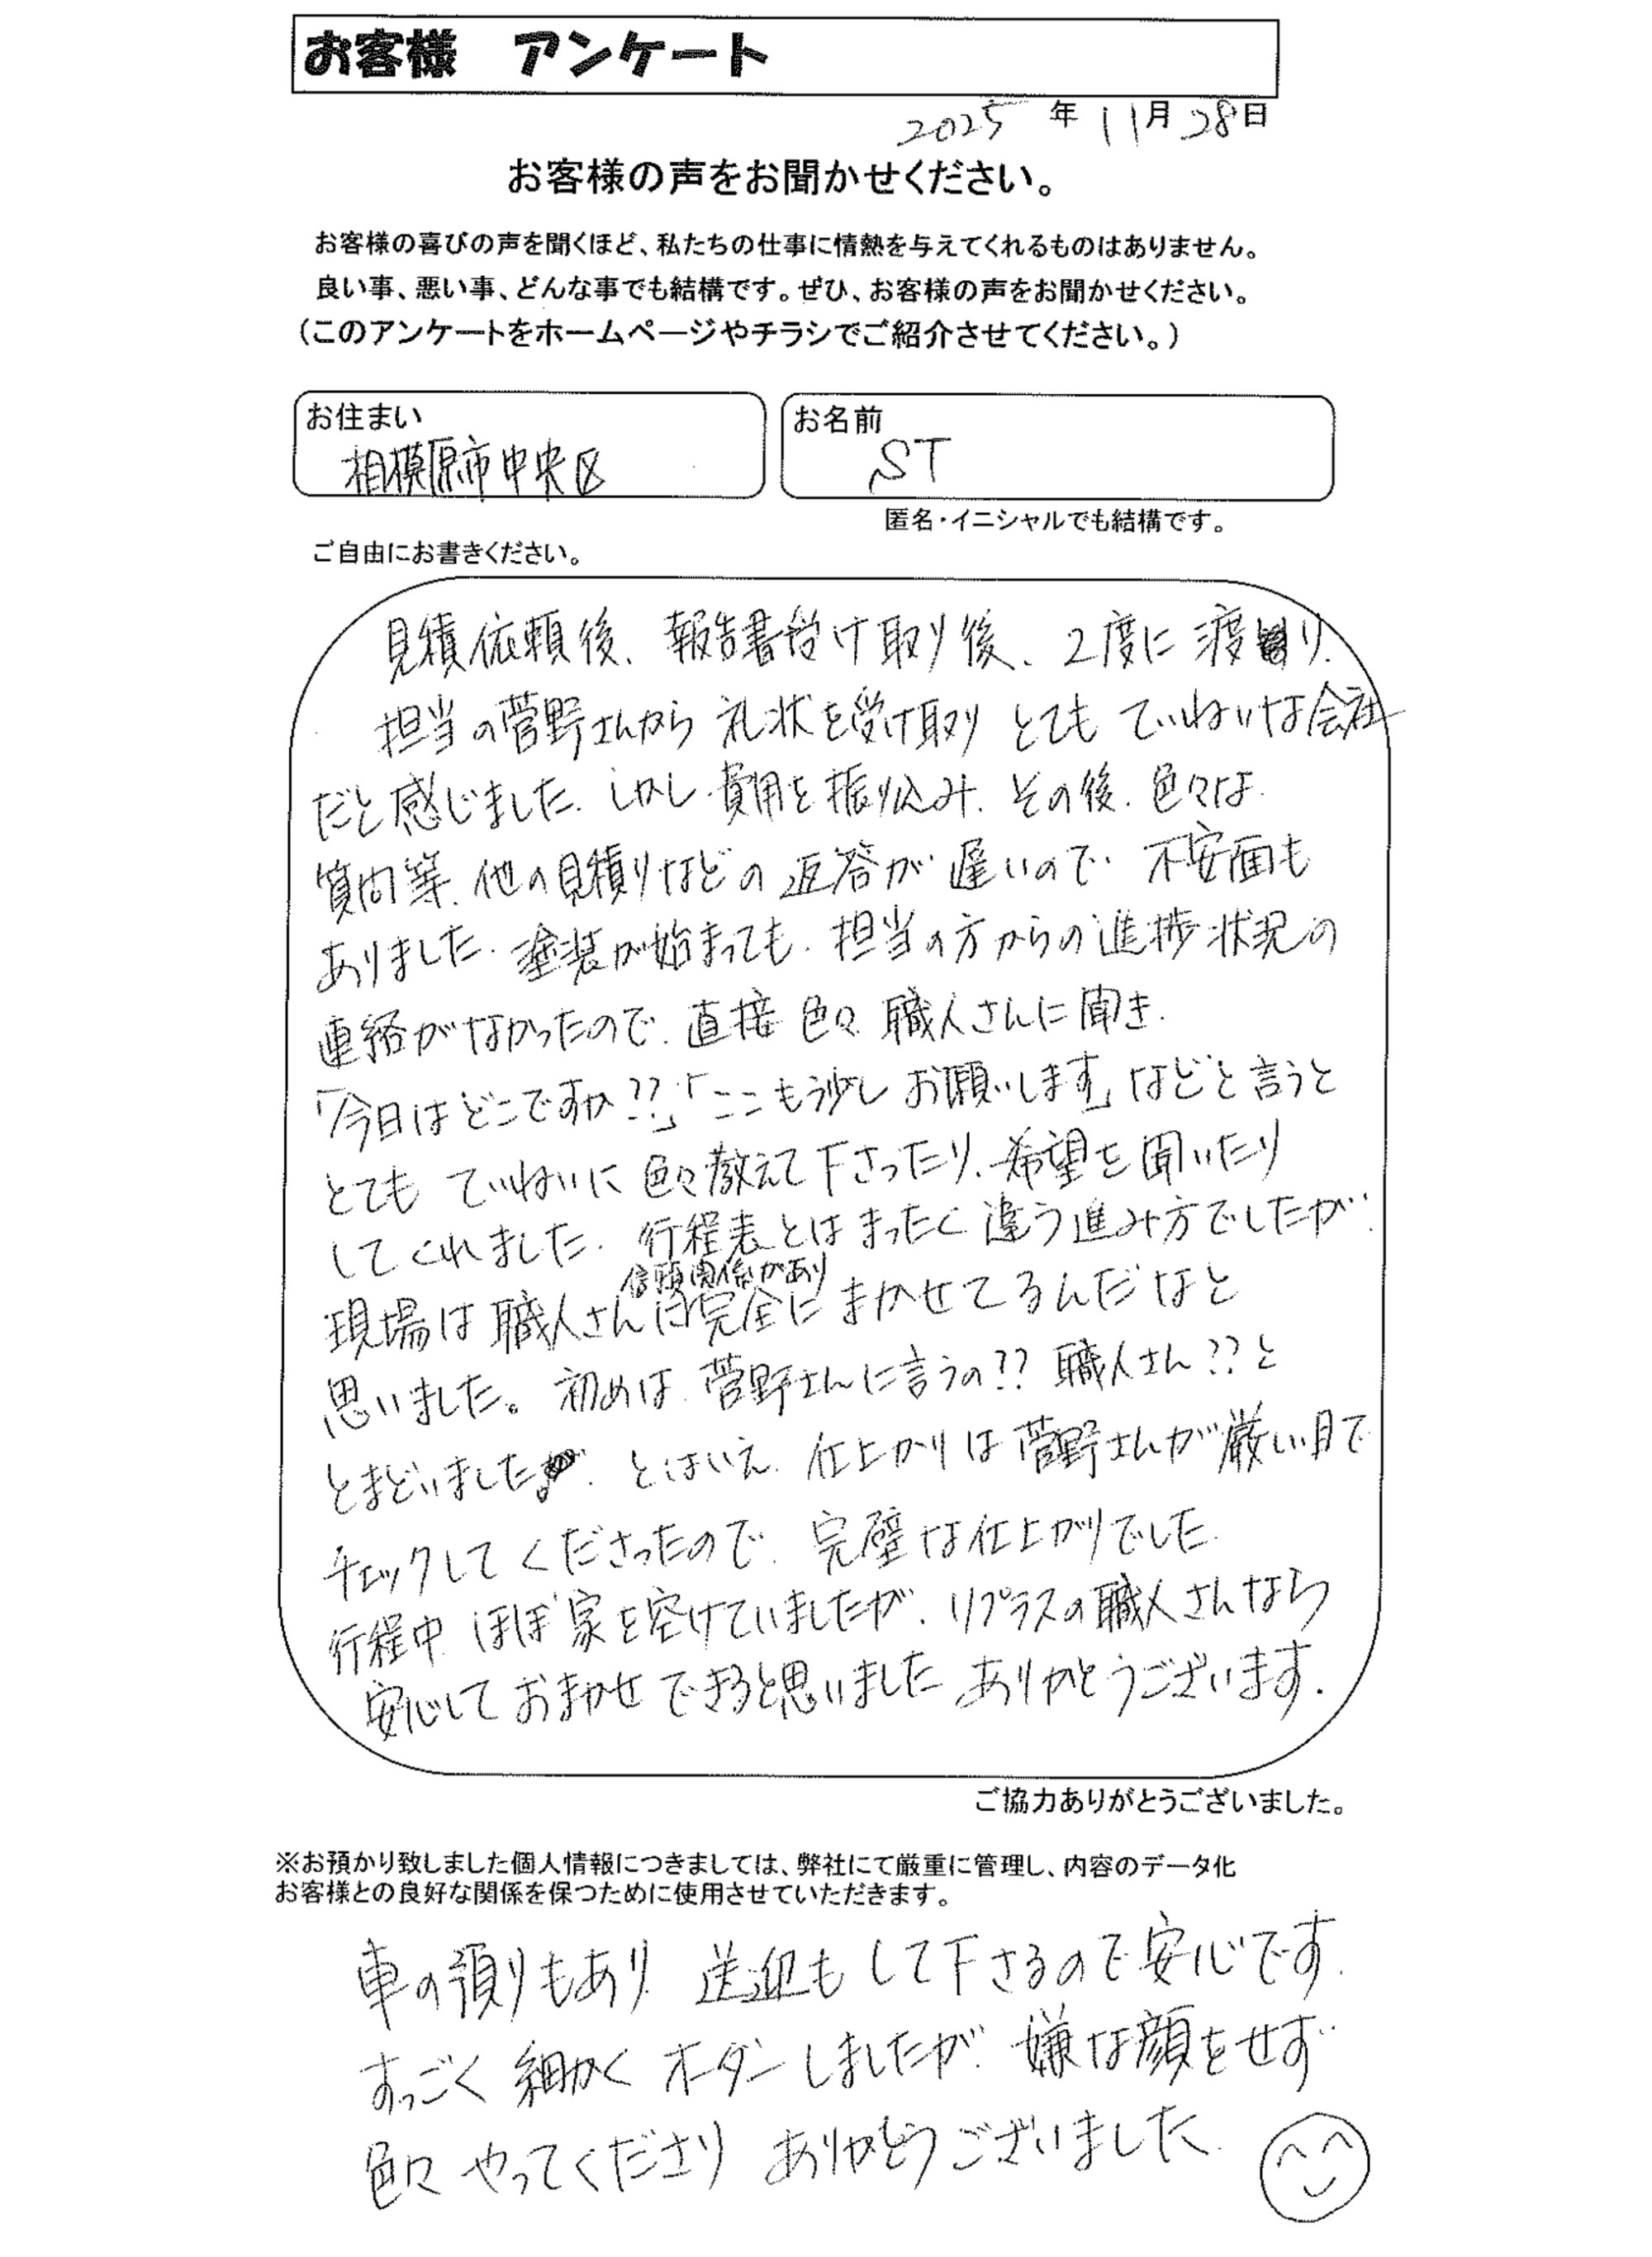 お客様 アンケート
2025年11月28日
お客様の声をお聞かせください。
お客様の喜びの声を聞くほど、私たちの仕事に情熱を与えてくれるものはありません。
良い事、悪い事、どんな事でも結構です。ぜひ、お客様の声をお聞かせください。
（このアンケートをホームページやチラシでご紹介させてください。）
お住まい
相模原市中央区
お名前
ST
匿名・イニシャルでも結構です。
ご自由にお書きください。
見積依頼後、報告書受け取り後、2度に渡り、
担当の菅野さんから礼状を受け取りとてもていねいな会社
だと感じました。しかし費用を振り込み、その後、色々な
質問等、他の見積りなどの返答が遅いので不安面も
ありました。塗装が始まっても、担当の方からの進捗状況の
連絡がなかったので、直接色々職人さんに聞き、
「今日はどこですか??」「ここもう少しお願いします」などと言うと
とてもていねいに色々教えて下さったり、希望を聞いたり
してくれました。行程表とはまったく違う進み方でしたが、
信頼関係があり
現場は職人さんに完全にまかせてるんだなと
思いました。初めは、菅野さんに言うの??職人さん??と
とまどいました。とはいえ、仕上がりは菅野さんが厳しい目で
チェックしてくださったので、完璧な仕上がりでした。
行程中ほぼ家を空けていましたが、リプラスの職人さんなら
安心しておまかせできると思いました ありがとうございます。
ご協力ありがとうございました。
※お預かり致しました個人情報につきましては、弊社にて厳重に管理し、内容のデータ化
お客様との良好な関係を保つために使用させていただきます。
車の預りもあり、送迎もして下さるので安心です。
すっごく細かくオーダーしましたが、嫌な顔をせず
色々やってくださりありがとうございました。